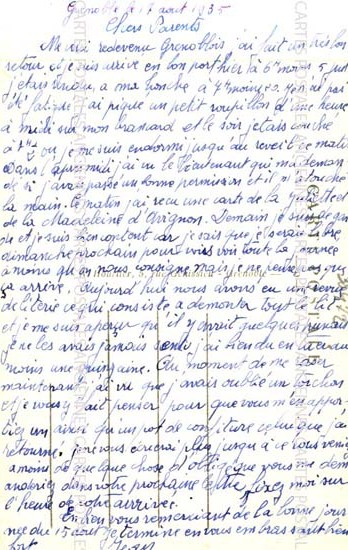 Grenoble le 17 août 1935
Chers Parents
Me voici redevenu Grenoblois j'ai fait un très bon
retour et je suis arrivé en bon port hier à 6h moins 5 puis
j'étais rendu a ma à 7h moins 20 je n'ai pas
été fatigué j'ai piqué un petit roupillon d'une heure
à midi sur mon brassard et le soir j'étais couché
à où je me suis endormi jusqu'au reveil ce matin
Dans l'après midi j'ai vu le lieutenant qui m'a deman
dé si j'avais passé un bonne permission et il m'a touché
la main. Ce matin j'ai recu une carte de la
de la Madeleine d'Avignon. Demain je suis
et je suis bien content car je sais que je serai libre
dimanche prochain pour vous voir toute la journée
a moins qu'on nous consigne mais je ne pas que
ça arrive. Aujourd'hui nous avons eu un
de literie ce qui consiste a demonter tout le lit
et je me suis aperçu qu'il y avait quelques punaises
je ne les avais jamais senti j'ai
moins une quinzaine. Au moment de me
maintenant j'ai vu que j'avais oublié un torchon
et je vous y fait penser pour que vous m'en appor
tiez un ainsi qu'un pot de confiture celui que j'ai
retourné. je ne vous écrirai plus jusqu'à ce vous veniez
a moins de quelque chose et obligé que vous me dem
anderiez dans votre prochaine lettre fixez moi sur
l'heure de votre arrivée.
En vous remerciant de la bonne jour
née du 15 août je termine en vous embrassant bien
fort Jean